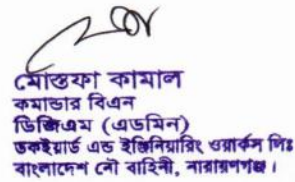 মোস্তফা কামাল
কমান্ডার বিএন
ডিজিএম (এডমিন)
ডকইয়ার্ড এন্ড ইঞ্জিনিয়ারিং ওয়ার্কস লিঃ
বাংলাদেশ নৌ বাহিনী, নারায়ণগঞ্জ।